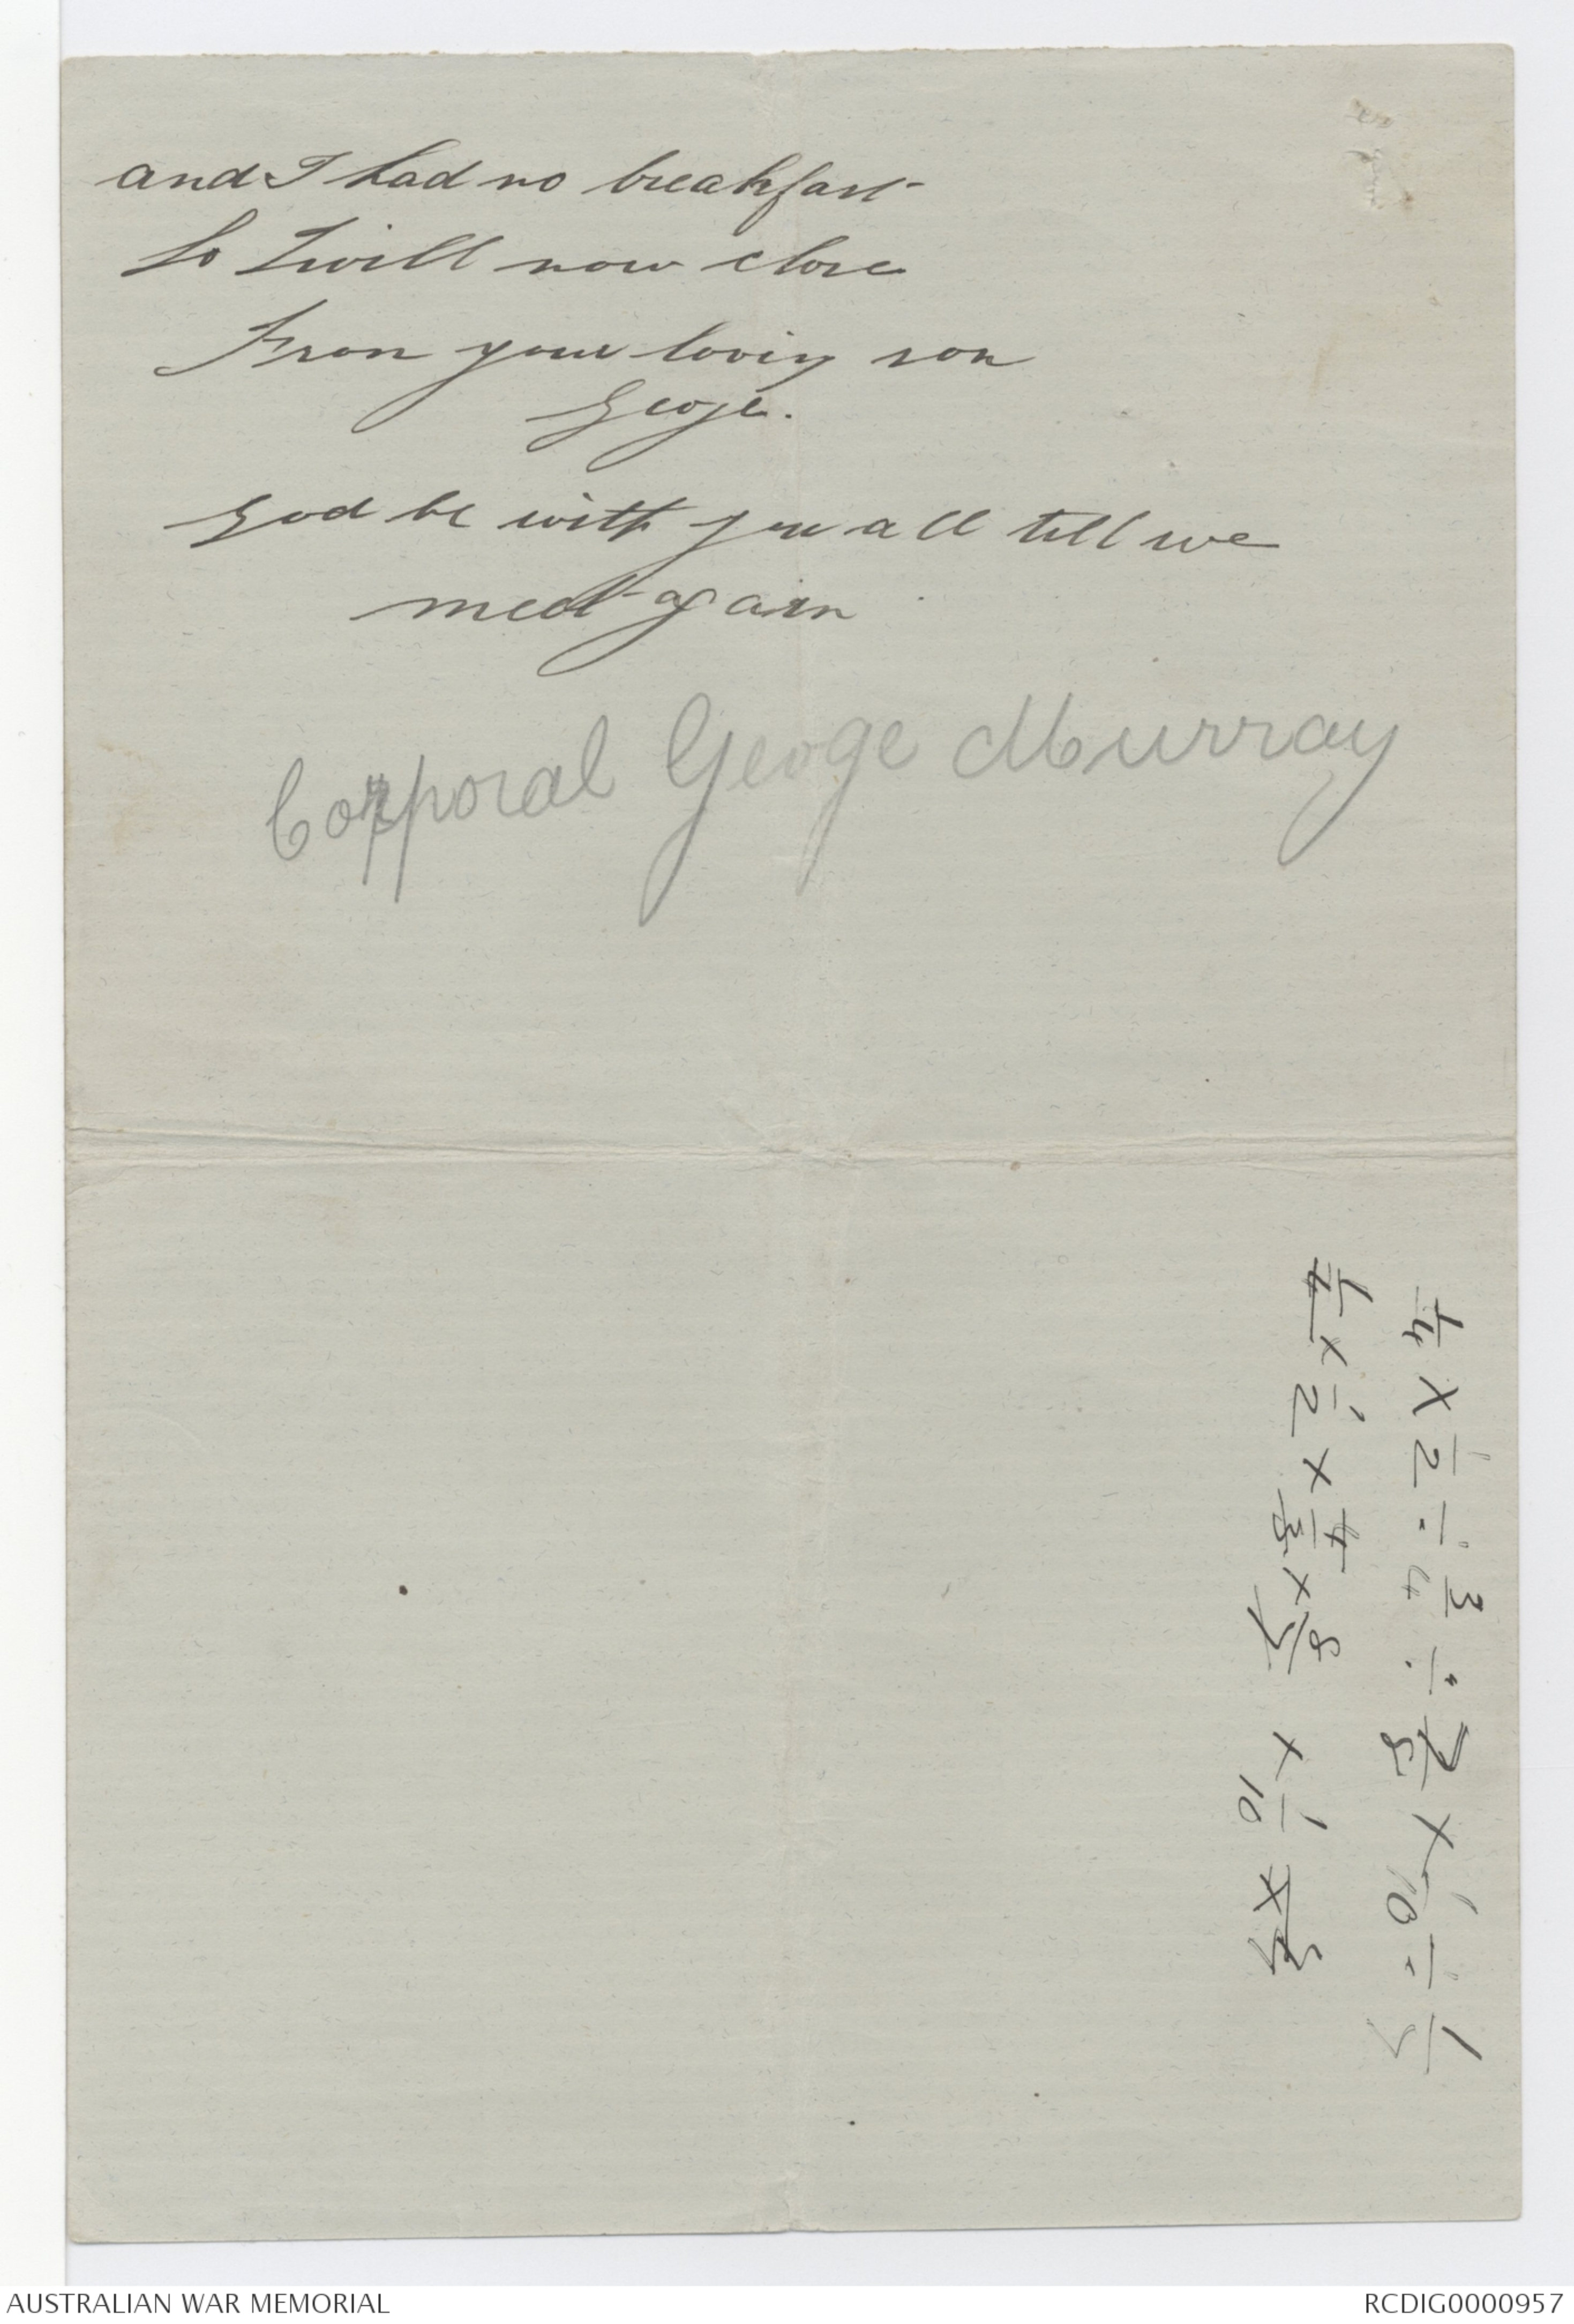 and I had no breakfast
So I will now close
From your loving son
Geoge.
God be with you all till we
meet again
Corporal Geoge Murray
1/4 × 1/2 ÷ 3/4 ÷ 7/8 × 1/10 ÷ 1/5
1/4 × 1/2 × 4/3 × 8/7 × 1/10 ×
AUSTRALIAN WAR MEMORIAL
RCDIG0000957